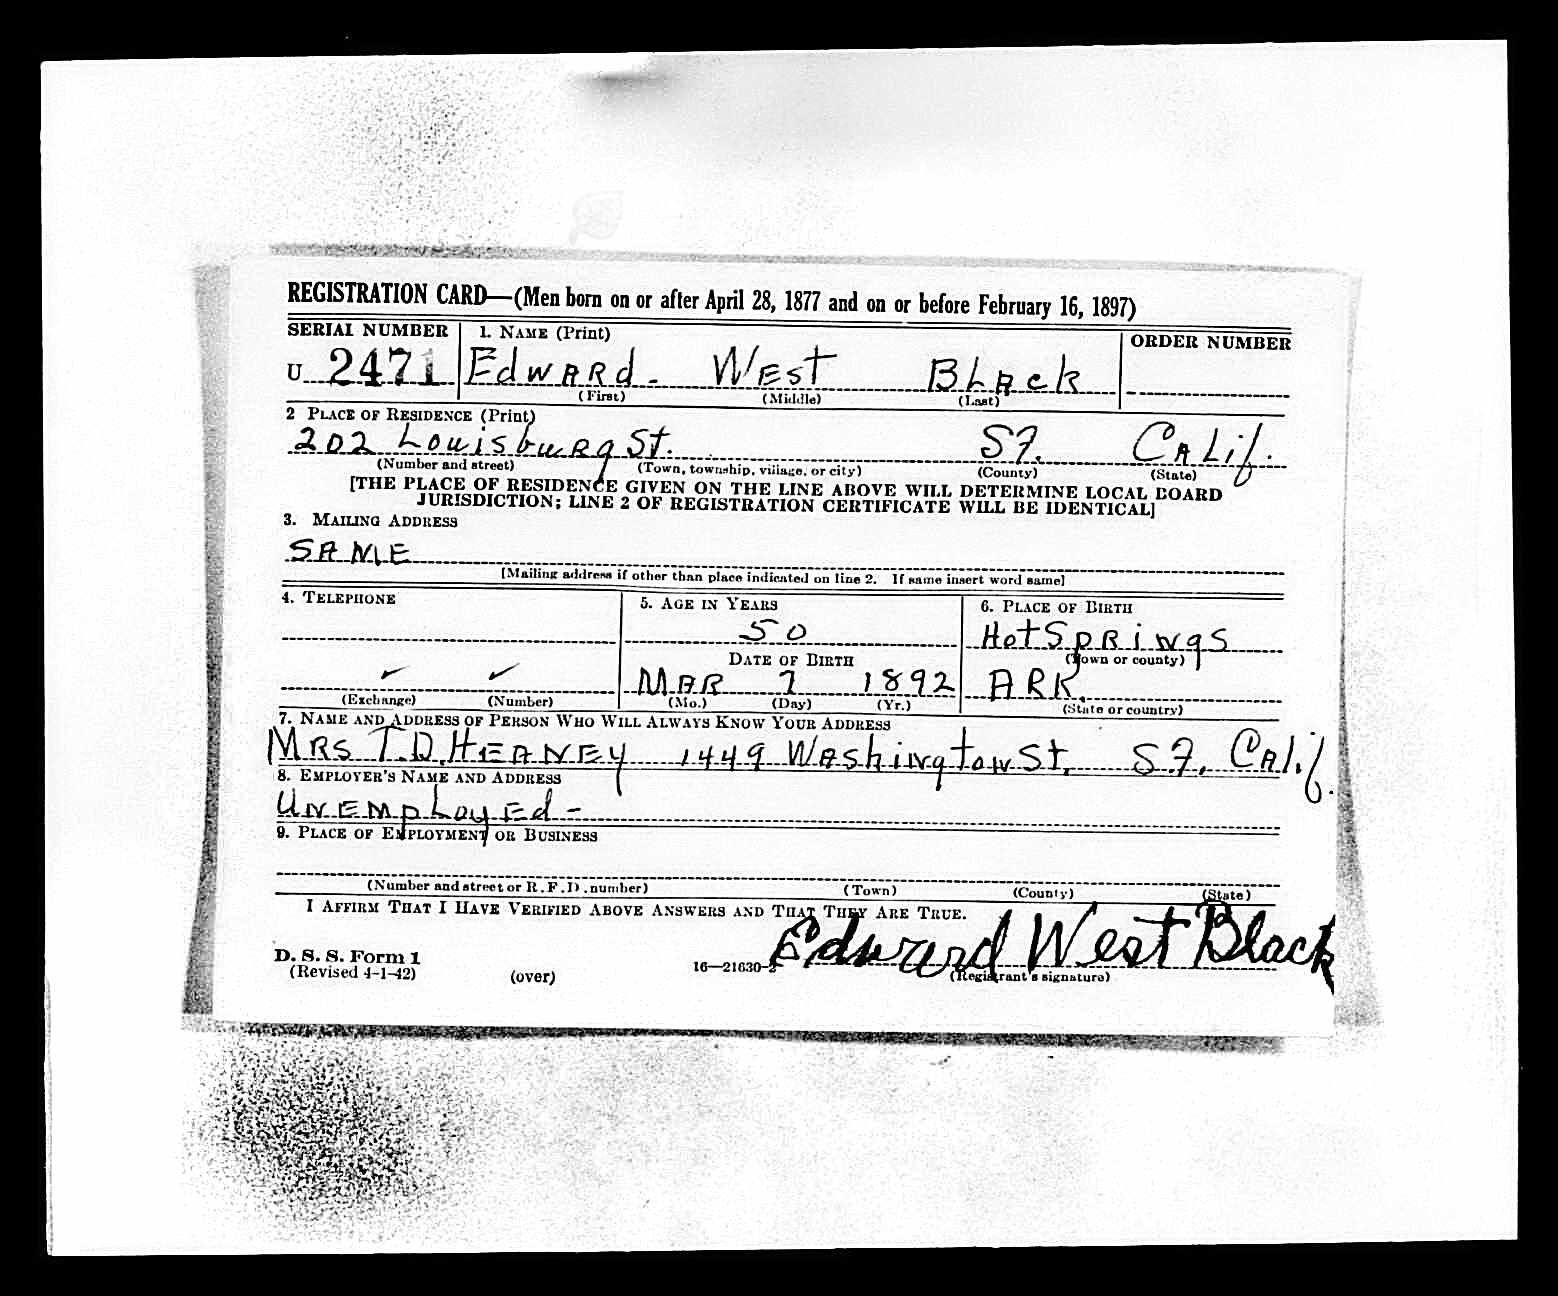 REGISTRATION CARD—(Men born on or after April 28, 1877 and on or before February 16, 1897)
SERIAL NUMBER 1. NAME (Print) ORDER NUMBER
U 2471 Edward West Black
(First) (Middle) (Last)
2 PLACE OF RESIDENCE (Print)
202 Louisburg St. S.F. Calif.
(Number and street) (Town, township, village, or city) (County) (State)
[THE PLACE OF RESIDENCE GIVEN ON THE LINE ABOVE WILL DETERMINE LOCAL BOARD
JURISDICTION; LINE 2 OF REGISTRATION CERTIFICATE WILL BE IDENTICAL]
3. MAILING ADDRESS
SAME
[Mailing address if other than place indicated on line 2. If same insert word same]
4. TELEPHONE 5. AGE IN YEARS 6. PLACE OF BIRTH
50 Hot Springs
DATE OF BIRTH (Town or county)
MAR 7 1892 ARK.
(Exchange) (Number) (Mo.) (Day) (Yr.) (State or country)
7. NAME AND ADDRESS OF PERSON WHO WILL ALWAYS KNOW YOUR ADDRESS
MRS T.D. HEANEY 1449 Washington St. S.F. Calif.
8. EMPLOYER'S NAME AND ADDRESS
Unemployed -
9. PLACE OF EMPLOYMENT OR BUSINESS
(Number and street or R.F.D. number) (Town) (County) (State)
I AFFIRM THAT I HAVE VERIFIED ABOVE ANSWERS AND THAT THEY ARE TRUE.
Edward West Black
D. S. S. Form 1
(Revised 4-1-42) (over) 16—21630-2 (Registrant's signature)